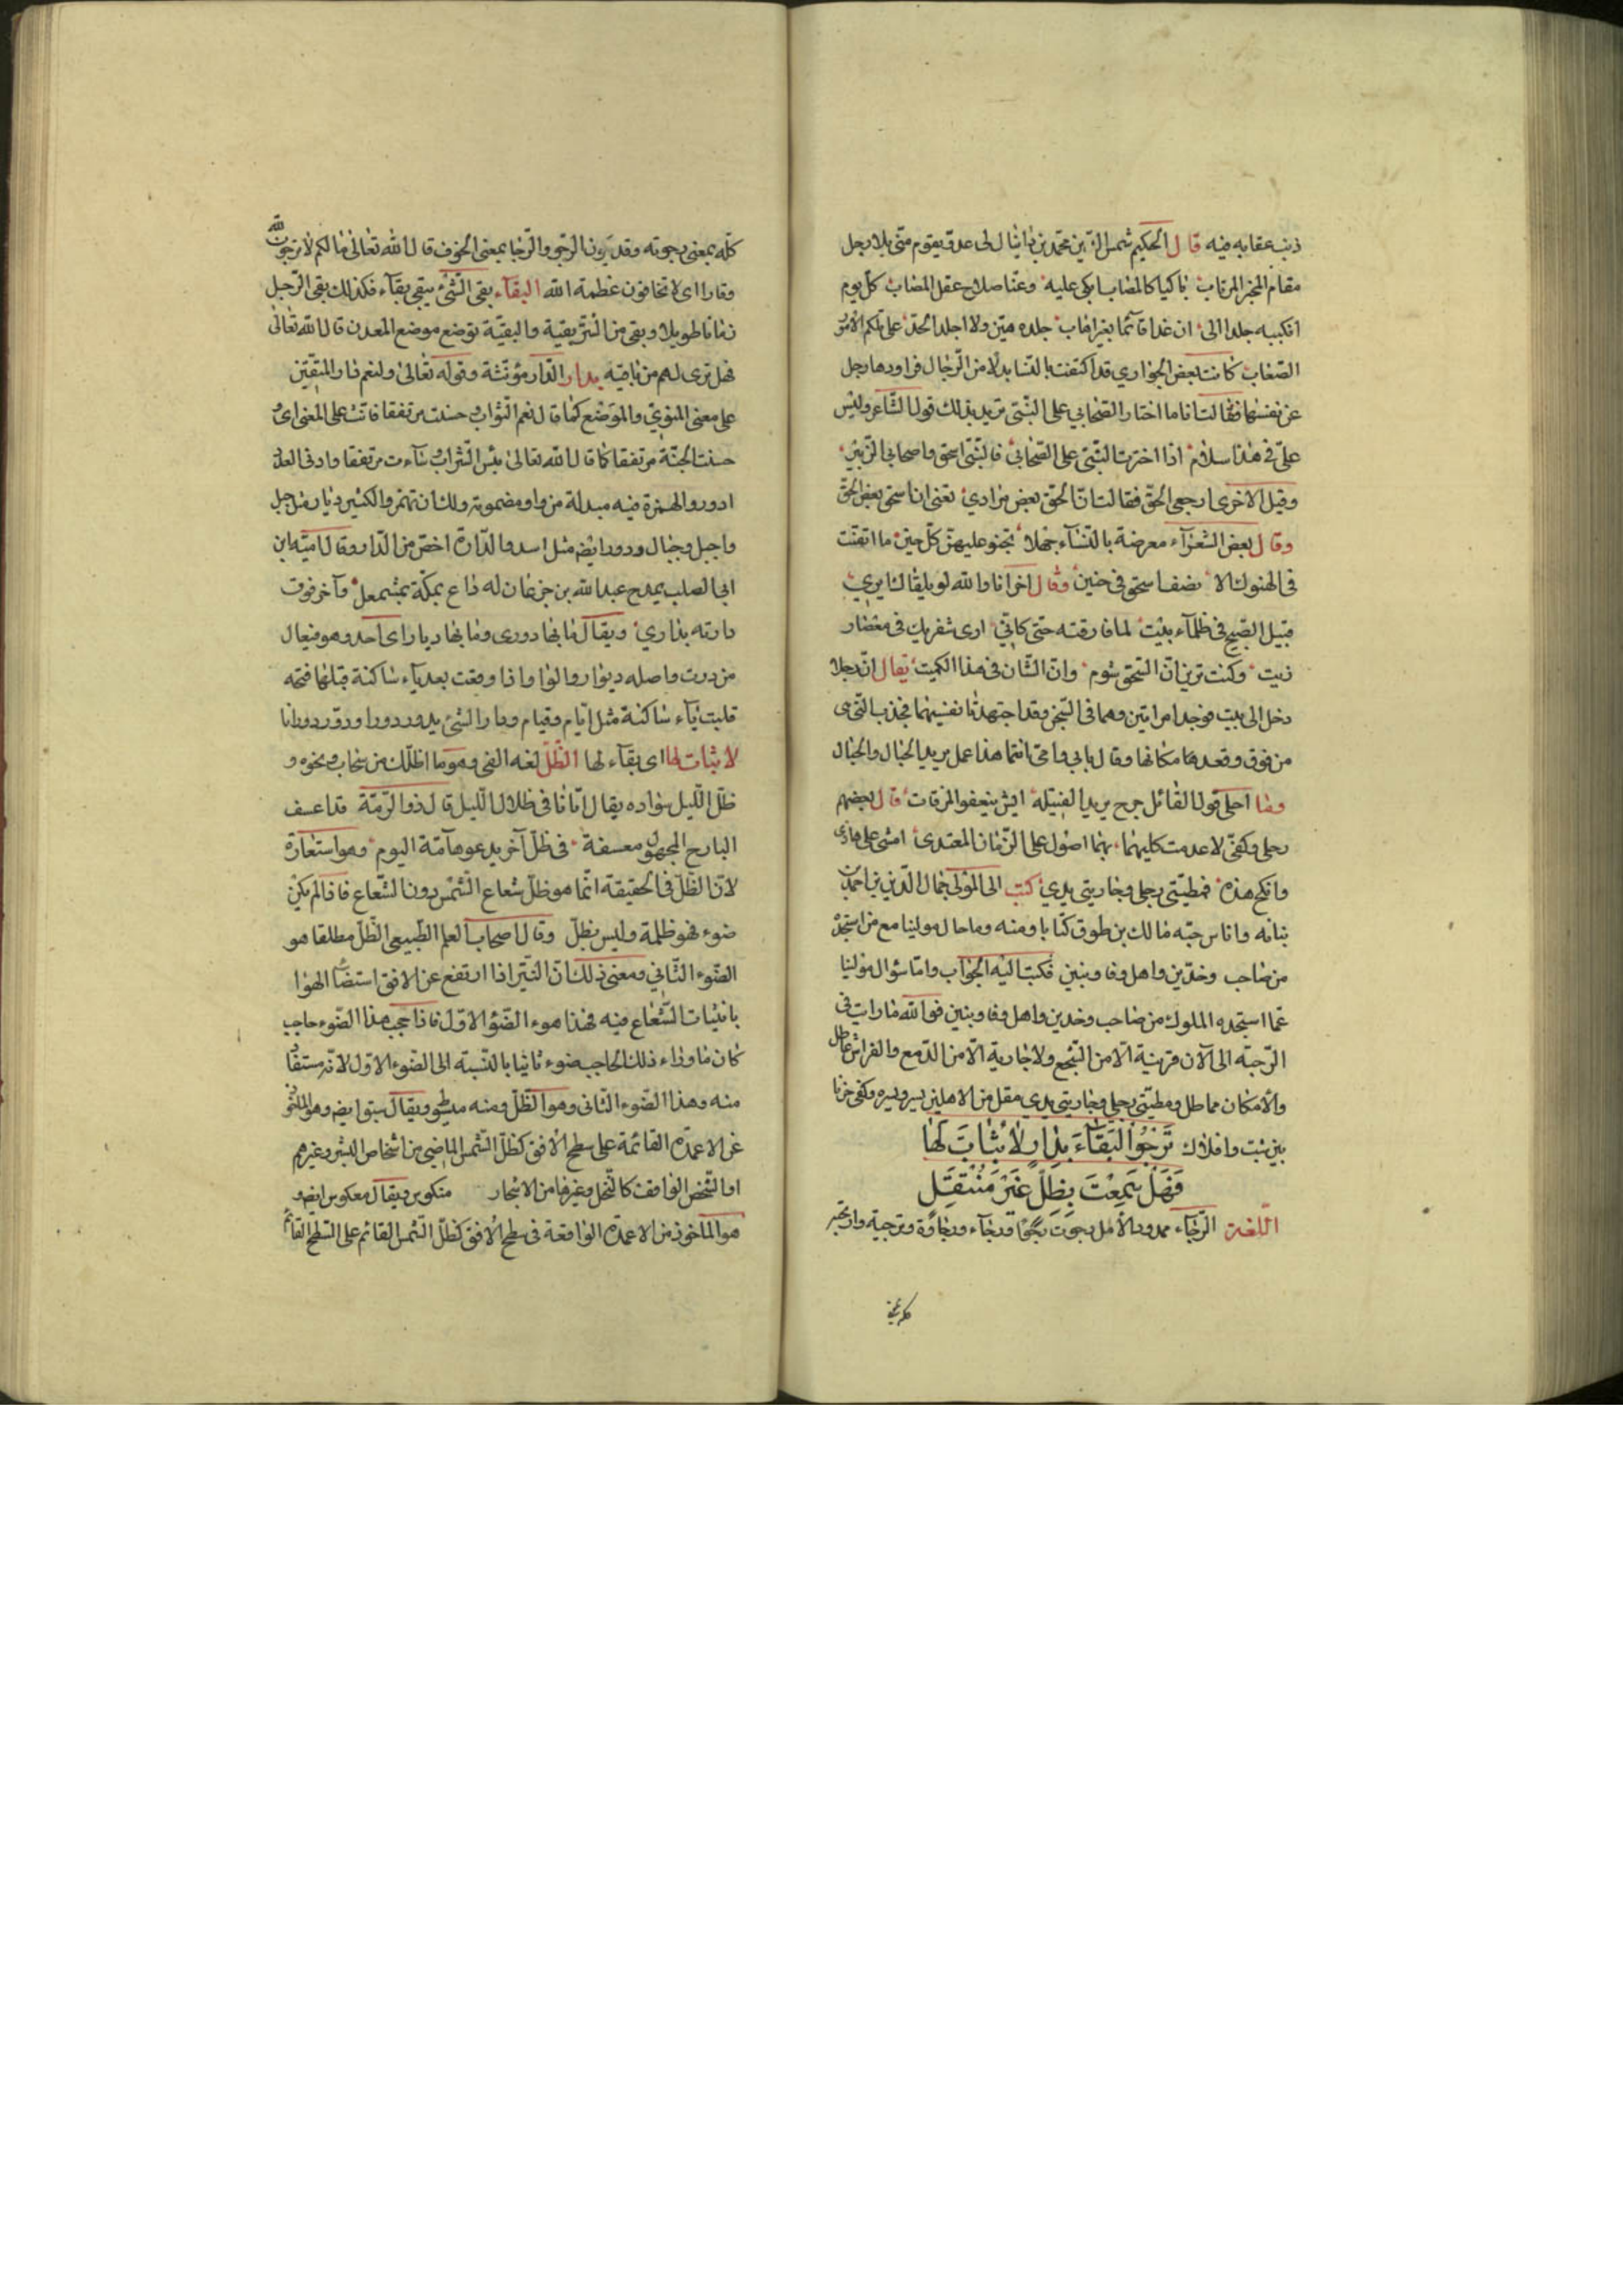 ذنب عقابه فيه قال الحكيم شمس الدين محمد بن دانيال لى عدو يقوم متى بلا رجل
مقام المرتاب باكيا كالمصاب ابكى عليه وعنا صلاح عقل المصاب كل يوم
ان غدا قائما بغير اهاب جلده ميتين ولا اجلد الحد على تلكم الامور
الصعاب كانت بعض الجوارى قد اكتفت بالنسا بدلا من الرجال فراودها رجل
عن نفسها فقالت انا ما اختار الصحابى على النبى تريد بذلك قول الشاعر وليس
على فى هذا سلام اذا اخترت النبى على الصحابى
وقيل الاخرى ارجعى الحق فقالت ان الحق بعض مرادى تعنى ان السحق بعض الحق
وقال بعض الشعراء معرضة بالنساء جهلا تجنو عليهن كل حين ما اتفقت
فى الهنوك الا نصفا سحق فى حنين وقال اخر انا والله لو يلقاك ايرى
قبيل الصبح فى ظلماء بيت لما فارقته حتى كانى ارى شفريك فى معصار
زيت وكنت ترين ان السحق شوم وان الشان فى هذا الكميت يقال ان رجلا
دخل الى بيت فوجد امراتين وهما فى السحق وقد اجتهدتا نفسيهما فجذب التى هى
من فوق وقعد مكانها وقال بابى وامى انتما هذا عمل يريد الخيال والخيال
وما احلى قول القائل جرح يريد الفتيلة ايش ينفعوا المرقات قال بعضهم
رجلى وكفى لا عدمت كليهما بهما اصول على الزمان المعتدى امشى على هاذى
وانكح هذه فمطيتى رجلى وجاريتى يدى كتب الى المولى جمال الدين بن احمد بن
نباته وانا من رحبة مالك بن طوق كتابا ومنه وما حال مولينا مع من استجده
من صاحب وخدين واهل وفا وبنين فكتب اليه الجواب واما سؤال مولينا
عما استجده المملوك من صاحب وخدين واهل وفا وبنين فوالله ما رايت فى
الرحبة الى الآن قرينة الا من السجع ولا جارية الا من الدمع والفراش عاطل
والامكان مماطل ومطيتى رجلى وجاريتى يدى مقل من الاهلين يسر ويسره وكفى حزنا
بين بنت واقلاك ترجوا البقاء بدار لا ثبات لها
فهل سمعت بظل غير منتقل
اللغة الرجاء ممدود الامل رجوت رجوا ورجاء ورجاوة وترجيته وارتجيته
كله بمعنى رجوته وقد يكون الرجو والرجا بمعنى الخوف قال الله تعالى ما لكم لا ترجون لله
وقارا اى لا تخافون عظمة الله البقاء بقى الشئ يبقى بقاء فكذلك بقى الرجل
زمانا طويلا وبقى من الشئ بقية والبقية توضع موضع المصدر قال الله تعالى
فهل ترى لهم من باقية بدار الدار مؤنثة وقوله تعالى ولنعم دار المتقين
على معنى المثوى والموضع كما قال نعم الثواب وحسنت مرتفقا فانث على المعنى اى
حسنت الجنة مرتفقا كما قال الله تعالى بئس الشراب وساءت مرتفقا وادنى العدد
ادور والهمزة فيه مبدلة من واو مضمومة ولك ان تهمز والكثير ديار مثل جبل
واجبل وجبال ودور ايضا مثل اسد والدارة اخص من الدار وقال امية ابن
ابى الصلت يمدح عبد الله بن جدعان له داع بمكة مشمعل وآخر فوق
دارته ينادى ويقال ما بها دورى وما بها ديار اى احد وهو فيعال
من درت واصله ديوار والواو اذا وقعت بعد ياء ساكنة قبلها فتحه
قلبت ياء ساكنة مثل ايام وقيام ودار الشئ يدور دورا ودؤورا ودورانا
لا ثبات لها اى بقاء لها الظل لغه الفى وهو ما اظلك من سحاب ونحوه و
ظل الليل سواده يقال اتانا فى ظلال الليل قال ذو الرمة قد اعسف
النازح المجهول معسفة فى ظل آخر يدعو هامه اليوم وهو استعارة
لان الظل فى الحقيقة انما هو ظل شعاع الشمس دون الشعاع فاذا لم يكن
ضوء فهو ظلمة وليس بظل وقال اصحاب العلم الطبيعى الظل مطلقا هو
الضوء الثانى ومعنى ذلك ان النير اذا ارتفع عن الافق استضاء الهوا
بانبثاث الشعاع فيه فهذا هو الضوء الاول فاذا حجب هذا الضوء حاجب
كان ما وراء ذلك الحاجب ضوء ثانيا بالنسبة الى الضوء الاول لانه مستفاد
منه وهذا الضوء الثانى وهو الظل ومنه مبسوط ويقال مستو ايضا وهو الماخوذ
عن الاعمدة القائمة على سطح الافق كظل الشمس الماضى من اشخاص البشر وغيرهم
او الشخص الواقف كالنخل وغيرها من الاشجار منكوس ويقال معكوس ايضا و
هو الماخوذ من الاعمدة الواقعة فى سطح الافق كظل الشمس القائم على السطح القائم